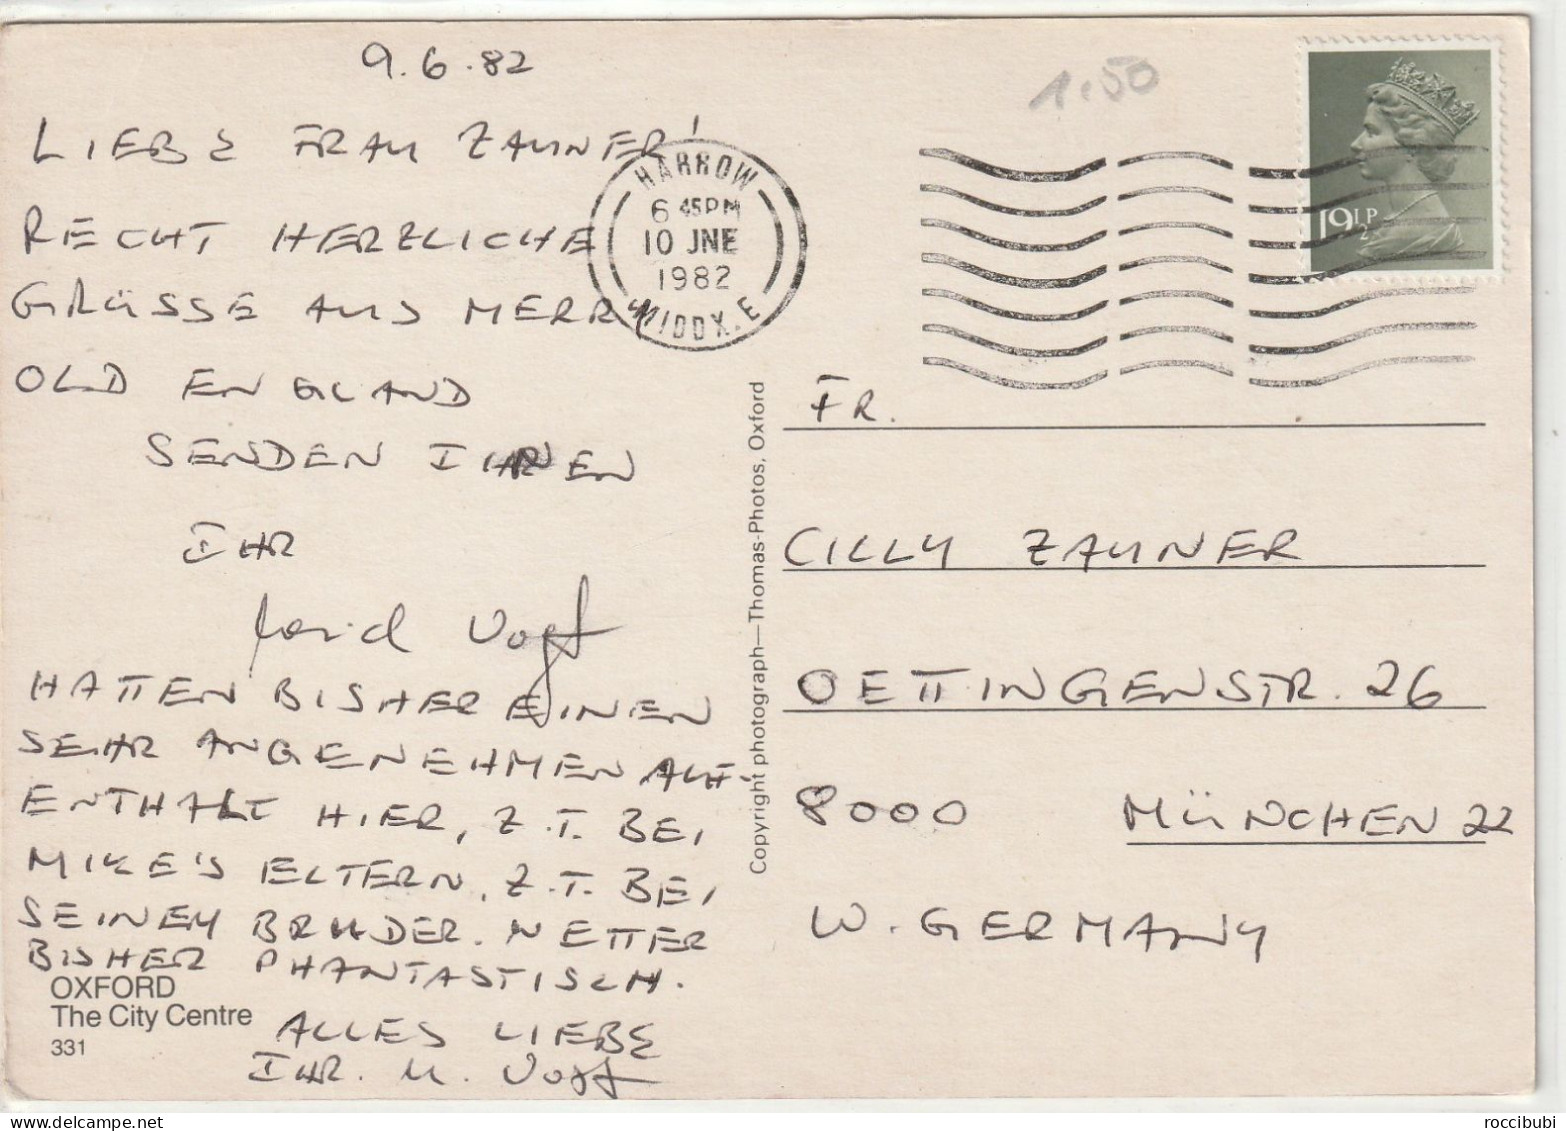 9.6.82
1.50
LIEBE FRAU ZAUNER!
RECHT HERZLICHE
GRÜSSE AUS MERRY
OLD ENGLAND
SENDEN IHNEN
IHR
Vogt
HATTEN BISHER EINEN
SEHR ANGENEHMEN AUF-
ENTHALT HIER, Z.T. BEI
MIKE'S ELTERN, Z.T. BEI
SEINEM BRUDER. WETTER
BISHER PHANTASTISCH.
ALLES LIEBE
IHR. M. Vogt
OXFORD
The City Centre
331
HARROW
6 45PM
10 JNE
1982
MIDDX. E
19½P
Copyright photograph—Thomas-Photos, Oxford
FR.
CILLY ZAUNER
OETTINGENSTR. 26
8000 MÜNCHEN 22
W. GERMANY
roccibubi